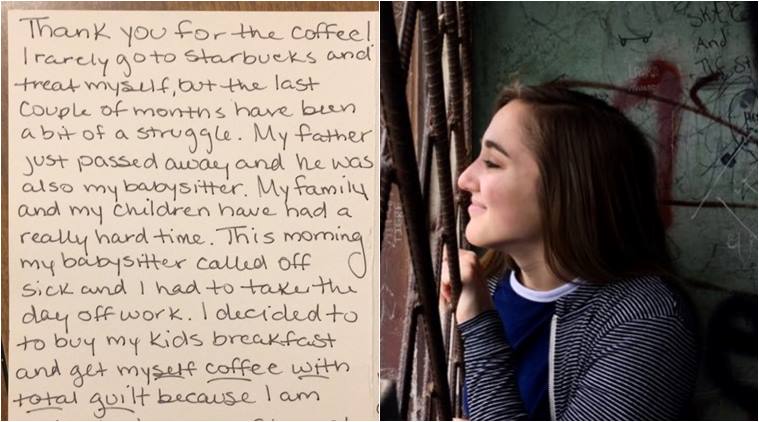 Thank you for the coffee!
I rarely go to Starbucks and
treat myself, but the last
couple of months have been
a bit of a struggle. My father
just passed away and he was
also my babysitter. My family
and my children have had a
really hard time. This morning
my babysitter called off
sick and I had to take the
day off work. I decided to
to buy my kids breakfast
and get myself coffee with
total guilt because I am
And
The